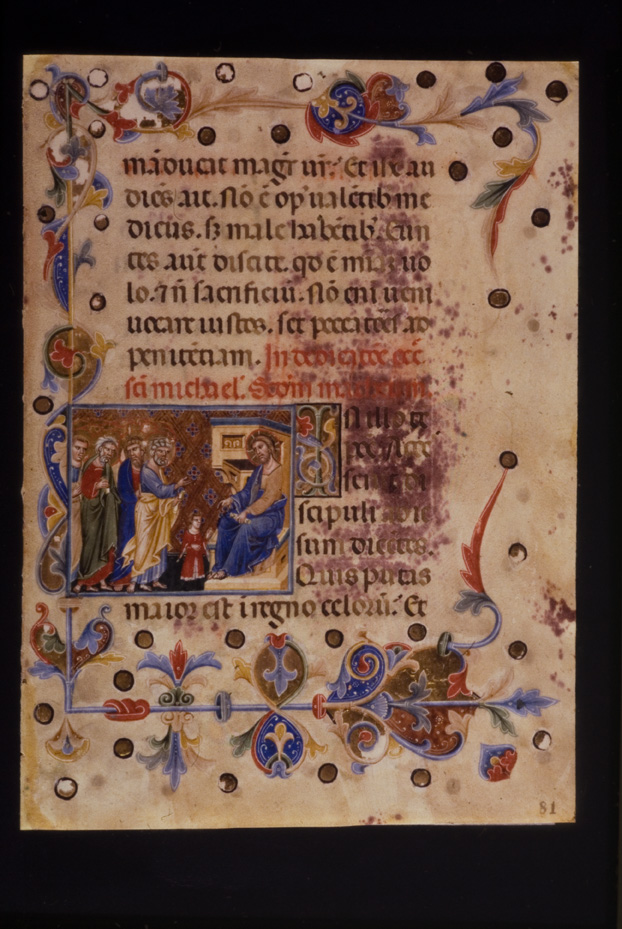 māducat magr̄ ur̄. Et ih̄c au
diēs ait. Nō ē op' ualētib me
dicus. sꝫ male habētib. Eun
tes aut̄ discite. qd ē mia uo
lo. ⁊ n̄ sacrificiū. Nō eni ueni
uocare iustos. set peccatōes ad
penitētiam. In dedicatōe ecc̄
sc̄i michael. Scdm matheum.
In illo tꝑ
acc
sc̄
scipuli ad ie
sum dicētes.
Quis putas
maior est i regno celorū. Et
81